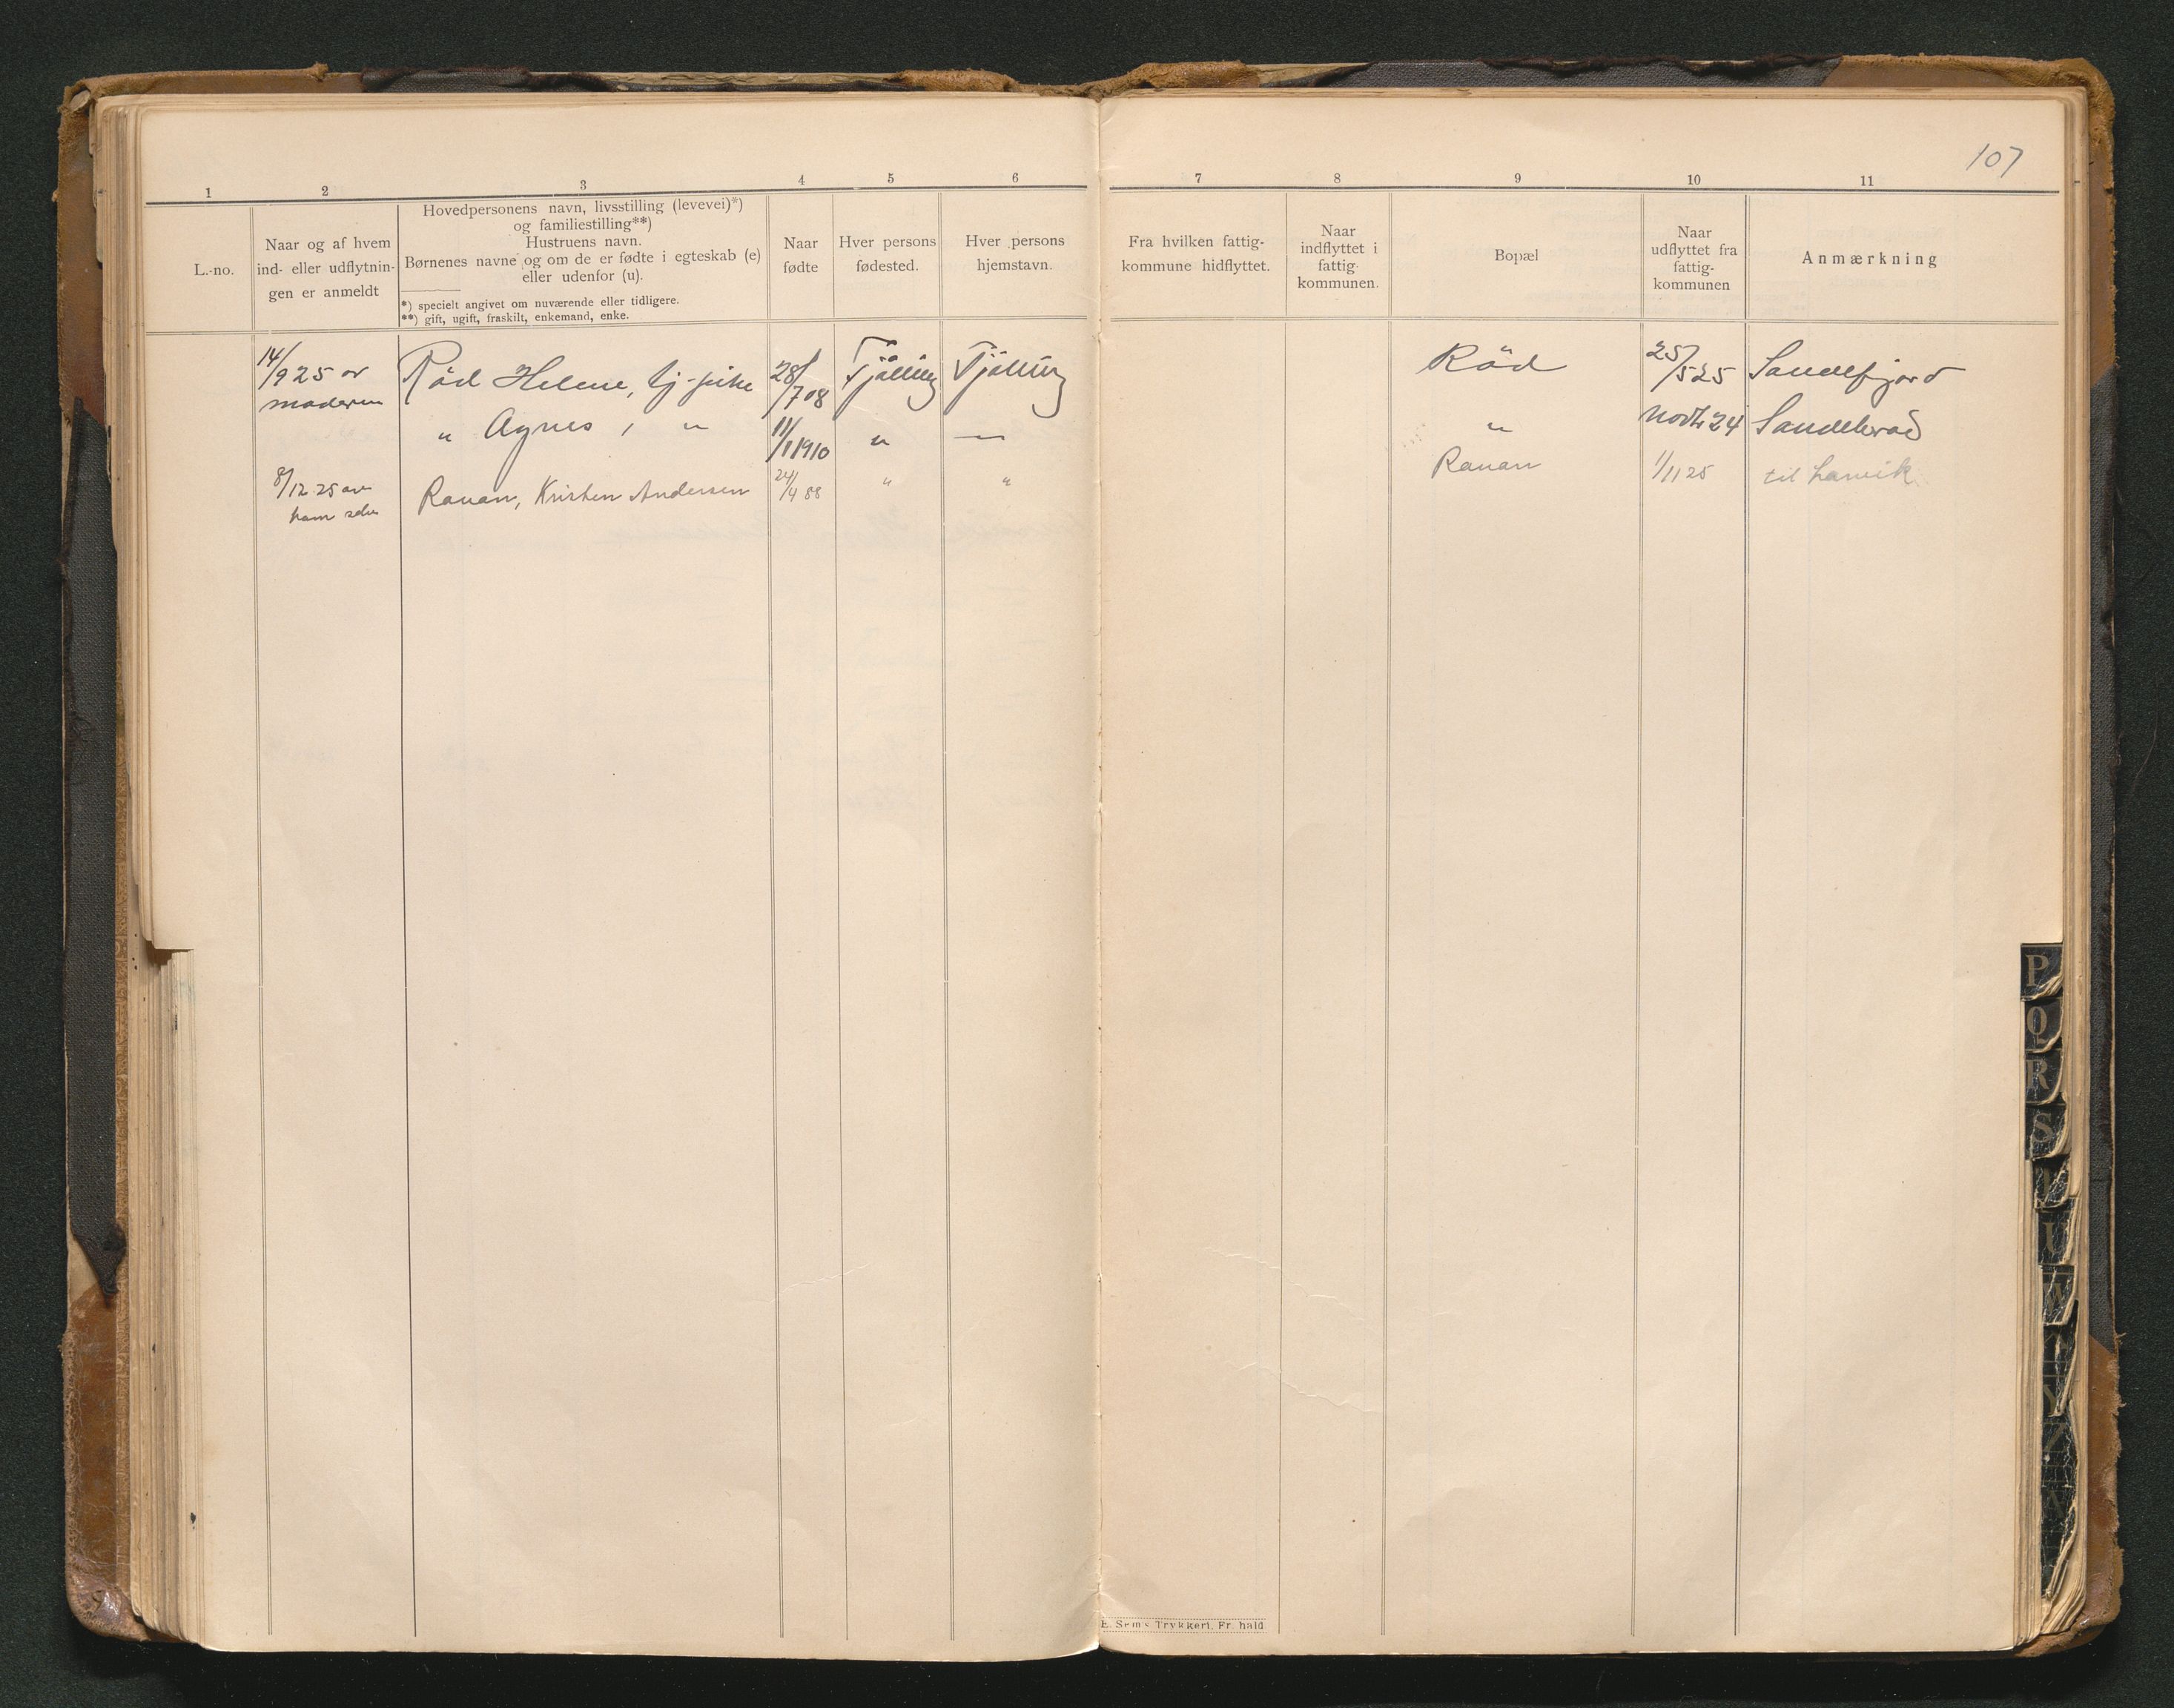 107
1 2 3 4 5 6 7 8 9 10 11
L.-no.
Naar og af hvem
ind- eller udflytnin-
gen er anmeldt
Hovedpersonens navn, livsstilling (levevei)*)
og familiestilling**)
Hustruens navn.
Børnenes navne og om de er fødte i egteskab (e)
eller udenfor (u).
*) specielt angivet om nuværende eller tidligere.
**) gift, ugift, fraskilt, enkemand, enke.
Naar
fødte
Hver persons
fødested.
Hver persons
hjemstavn.
Fra hvilken fattig-
kommune hidflyttet.
Naar
indflyttet i
fattig-
kommunen.
Bopæl
Naar
udflyttet fra
fattig-
kommunen
Anmærkning
14/9 25 av Röd Helene, tj-pike 28/7 08 Tjølling Tjølling Röd 25/5 25 Sandefjord
moderen
" Agnes, " 11/1 1910 " — " 24
8/12 25 av Rauan, Kristen Andersen 24/4 88 " " Rauan 1/11 25 til Larvik
ham selv
E. Sem's Trykkeri, Fr.hald
P
Q
R
S
U
W
Y
Z